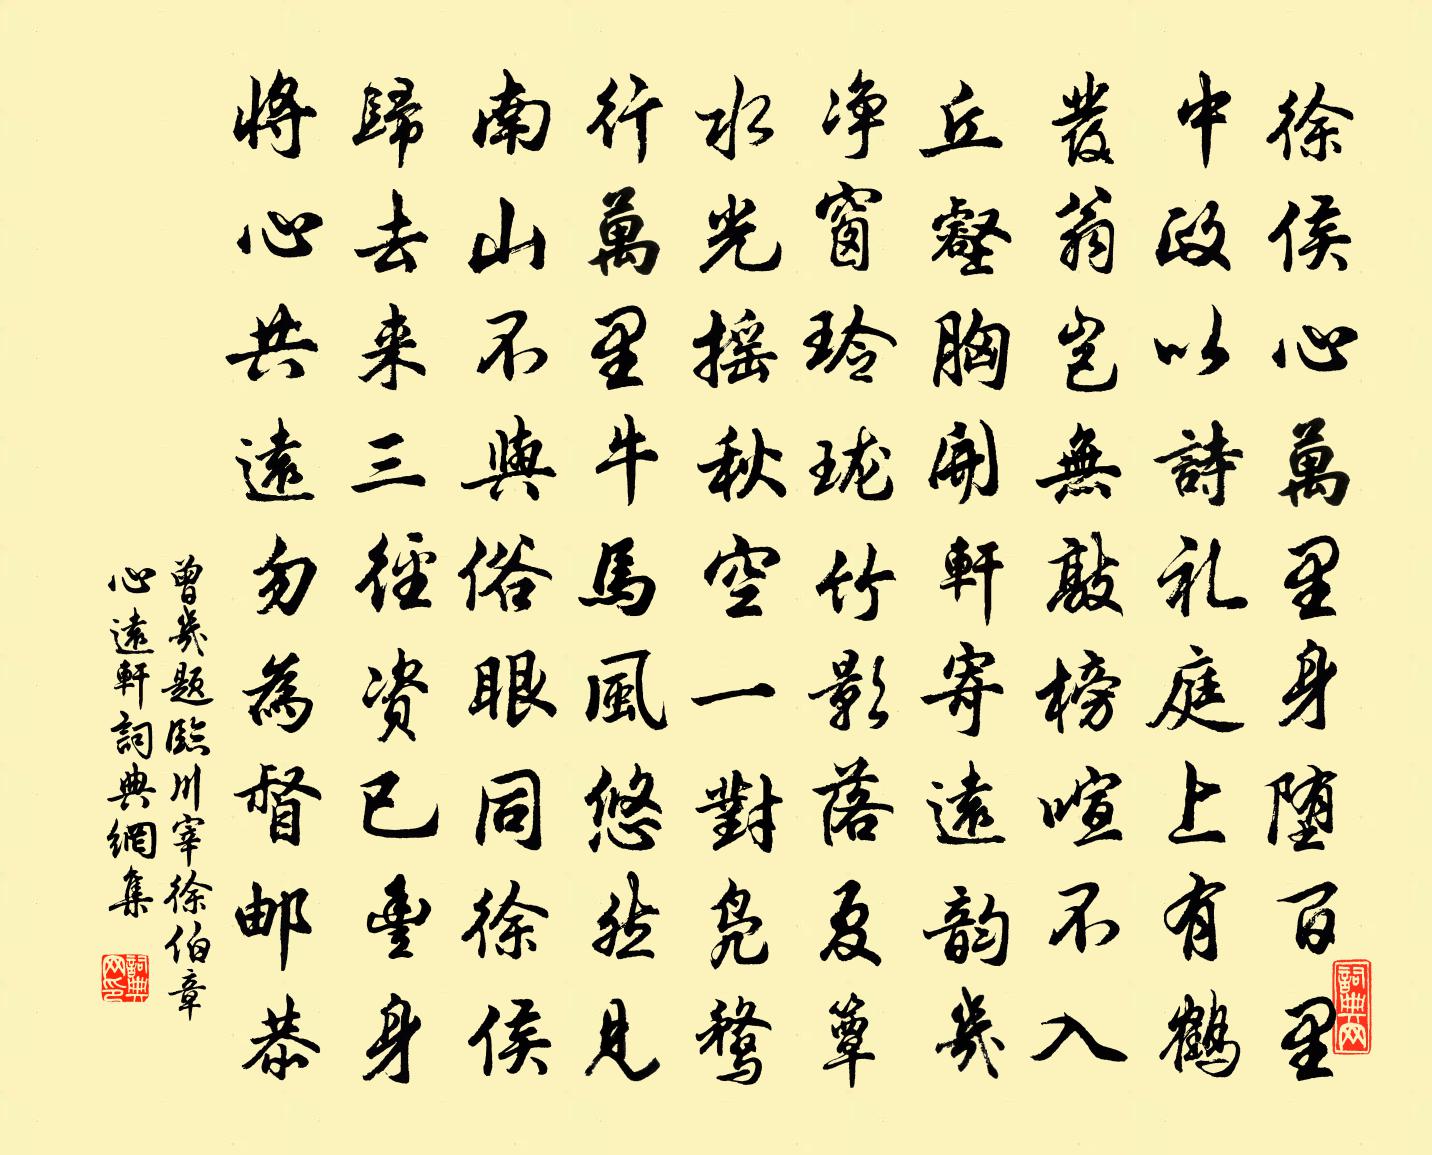 徐侯心萬里身堕百里
中政以詩礼庭上有鶴
發翁豈無敲榜喧不入
丘壑胸開軒寄遠韵幾
净窗玲瓏竹影落夏簟
水光摇秋空一對鳧鶩
行萬里牛馬風悠然見
南山不與俗眼同徐侯
歸去来三徑資已豊身
將心共遠勿為督邮恭
曾幾題臨川宰徐伯章
心遠軒詞典網集
詞典网
詞典网印